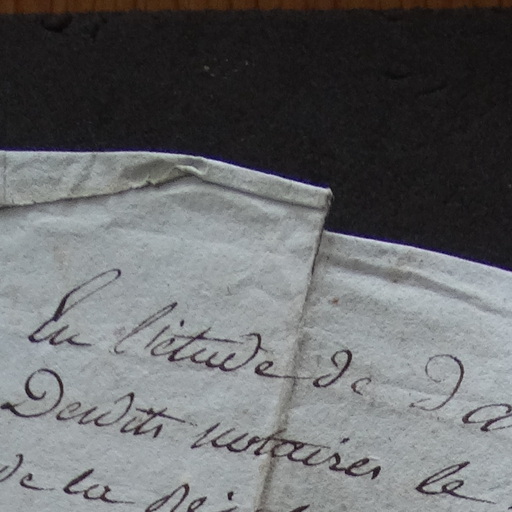 En l'étude de
Desdits notaires le
de la